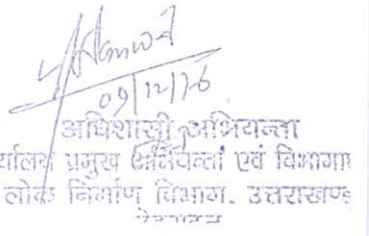 09/12/16
अधिशासी अभियन्ता
र्यालय प्रमुख अभियन्ता एवं विभागा
लोक निर्माण विभाग, उत्तराखण्ड
देहरादून